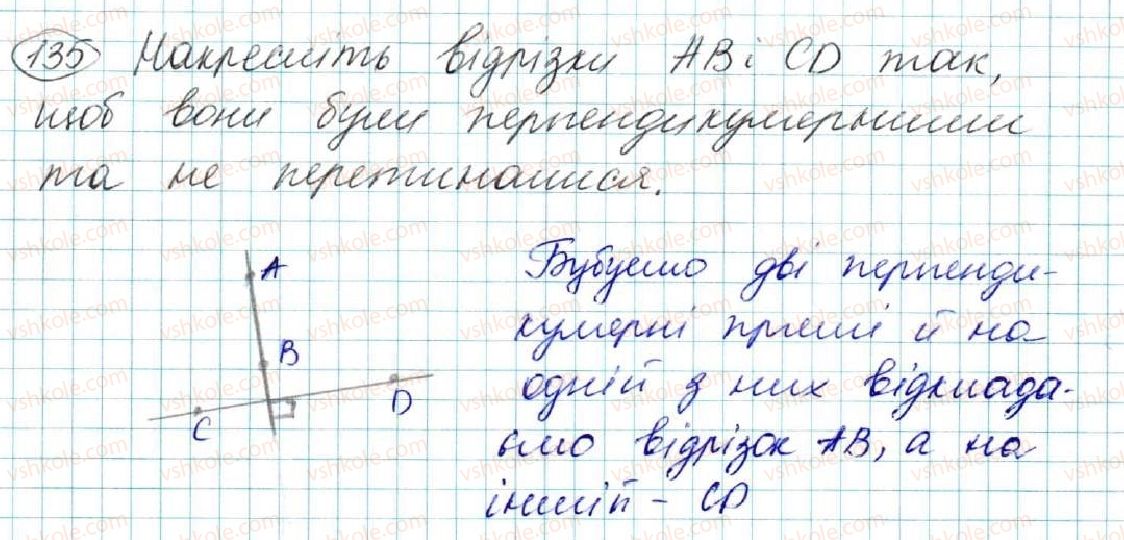 135 Накресліть відрізки AB і CD так,
щоб вони були перпендикулярними
та не перетиналися.
A
B
C
D
Бубуємо дві перпенди-
кулярні прямі й на
одній з них відклада-
ємо відрізок AB, а на
іншій - CD
vshkole.com